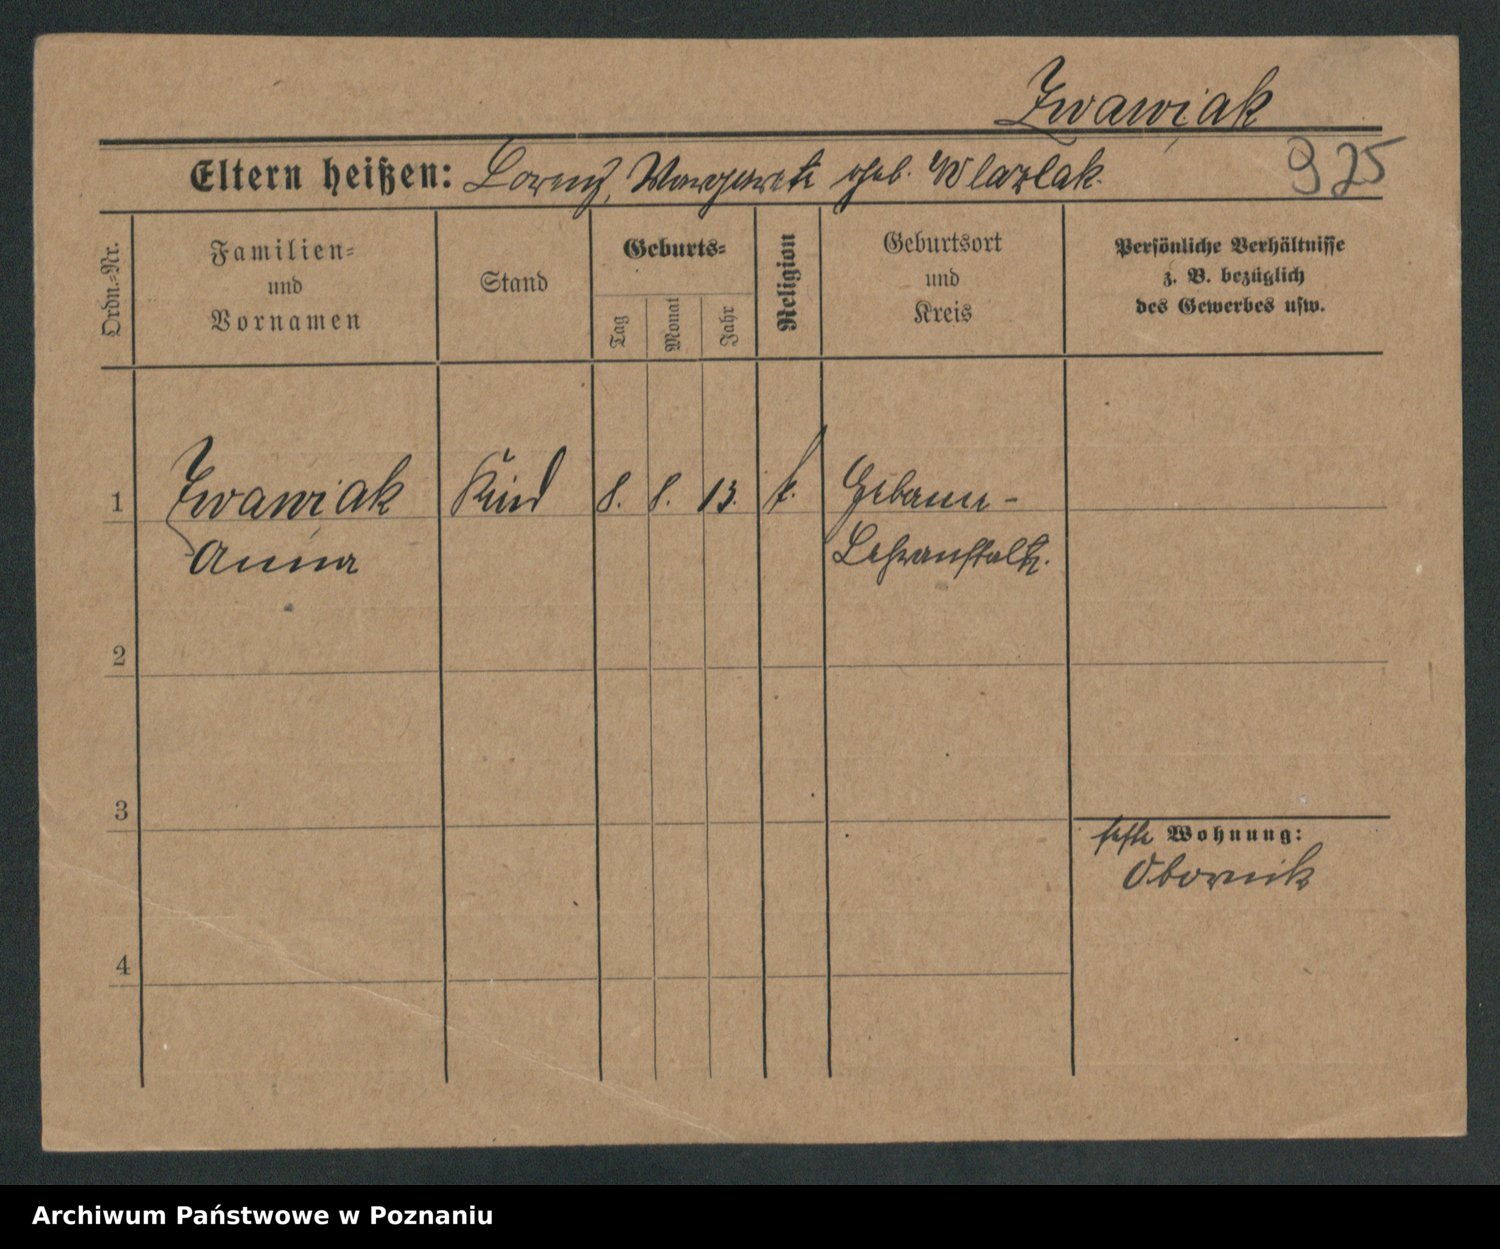 Zwawiak
Eltern heißen: Lorenz, Margarete geb. Wlazlak.
925
Ordn.-Nr.
Familien-
und
Vornamen
Stand
Geburts-
Tag
Monat
Jahr
Religion
Geburtsort
und
Kreis
Persönliche Verhältnisse
z. B. bezüglich
des Gewerbes usw.
1 Zwawiak Kind 8. 8. 13. k. Hebamm-
Anna Lehranstalt.
2
3
Wohnung:
Obornik
4
Archiwum Państwowe w Poznaniu